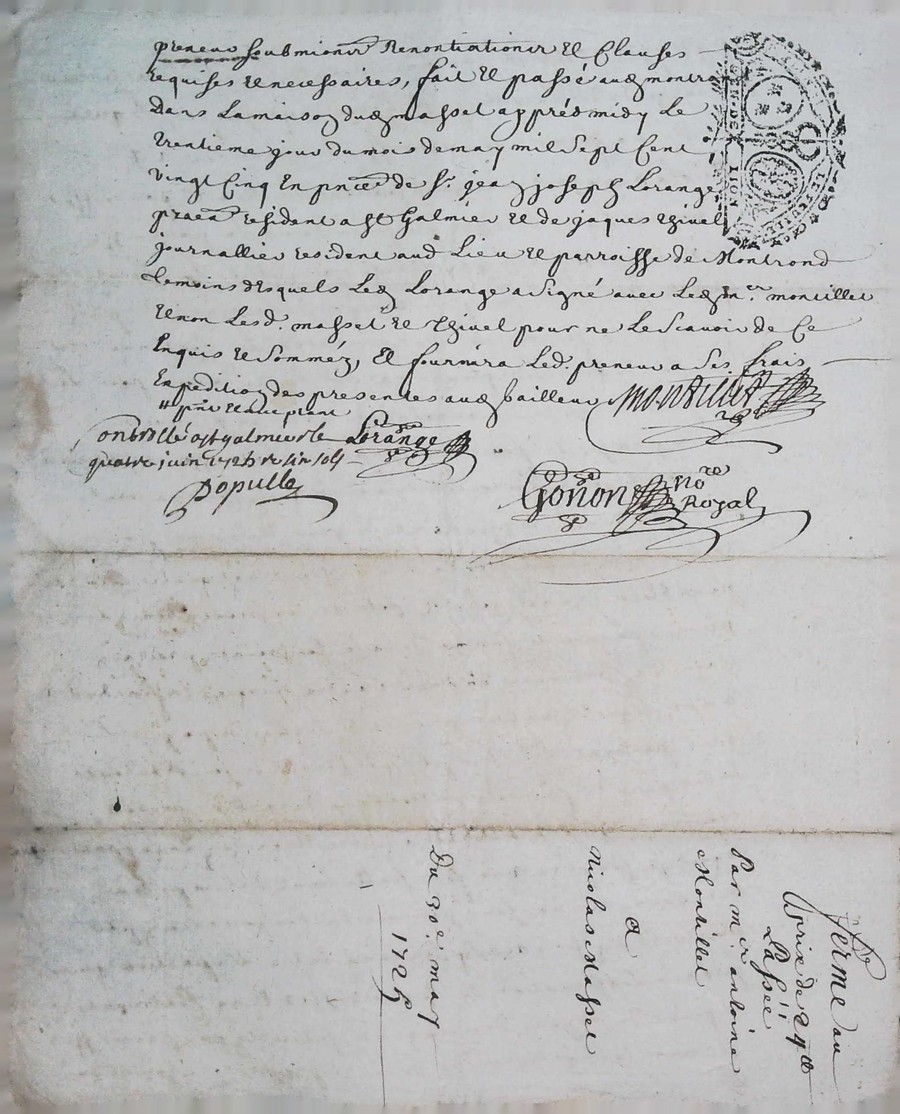 preneur soubmions Renontiations et Clauses
requises et necessaires, fait et passé aud montrond
Dans Lamaison dud masset appres midy Le
trentieme jour du mois de may mil sept Cent
vingt Cinq En pnce de Sr. jean joseph Lorange
resident a st Galmier et de jaques thivel
journallier resident aud Lieu et parroisse de Montrond
temoins desquels Led Lorange a signé avec Led mre montillet
Et non Lesd. masset et thivel pour ne Le scavoir de Ce
Enquis et sommés, Et fournira Led. preneur a ses frais
Expedition des presentes aud bailleur
pnt et acceptant
Montillet
onbrollé a st galmier le
Lorange
quatre juin 1725 re sols
Dopulle
Gonon No re
Royal
GEN. DE LION
Ferme au
prix de 24 tt
Passée
Par mre antoine
Montillet
a
Nicolas Masset
Du 30e. may
1725